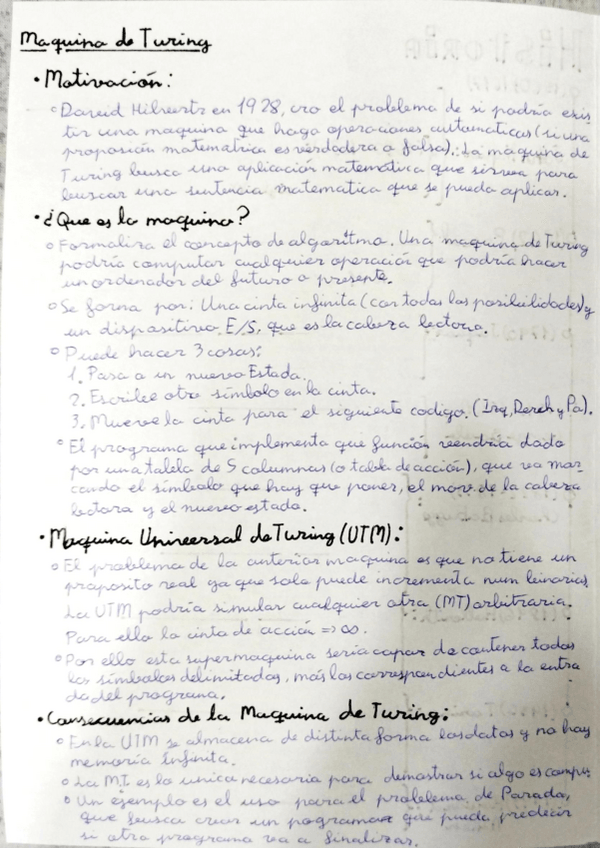 Maquina de Turing
• Motivación:
° David Hilbertz en 1928, cro el problema de si podría exis
tir una maquina que haga operaciones automaticas (si una
proposición matematica es verdadera o falsa). La maquina de
Turing busca una aplicación matematica que sirva para
buscar una sentencia matematica que se pueda aplicar.
• ¿Que es la maquina?
° Formaliza el concepto de algoritmo. Una maquina de Turing
podría computar cualquier operación que podría hacer
un ordenador del futuro o presente.
° Se forma por: Una cinta infinita (con todas las posibilidades) y
un dispositivo E/S, que es la cabeza lectora.
° Puede hacer 3 cosas:
1. Pasa a un nuevo Estado.
2. Escribe otro símbolo en la cinta.
3. Mueve la cinta para el siguiente codigo. (Izq, Derch y Pa).
° El programa que implementa que función vendría dado
por una tabla de 5 columnas (o tabla de acción), que va mar_
cando el símbolo que hay que poner, el mov. de la cabeza
lectora y el nuevo estado.
• Maquina Universal de Turing (UTM):
° El problema de la anterior maquina es que no tiene un
proposito real ya que solo puede incrementa num binarios
La UTM podría simular cualquier otra (MT) arbitraria.
Para ello la cinta de acción => ∞.
° Por ello esta supermaquina seria capaz de contener todos
los símbolos delimitados, más los correspondientes a la entra
da del programa.
• Consecuencias de la Maquina de Turing:
° En la UTM se almacena de distinta forma los datos y no hay
memoria infinita.
° La M.T es la unica necesaria para demostrar si algo es
° Un ejemplo es el uso para el problema de Parada,
que busca crear un pogramar que pueda predecir
si otro programa va a finalizar.